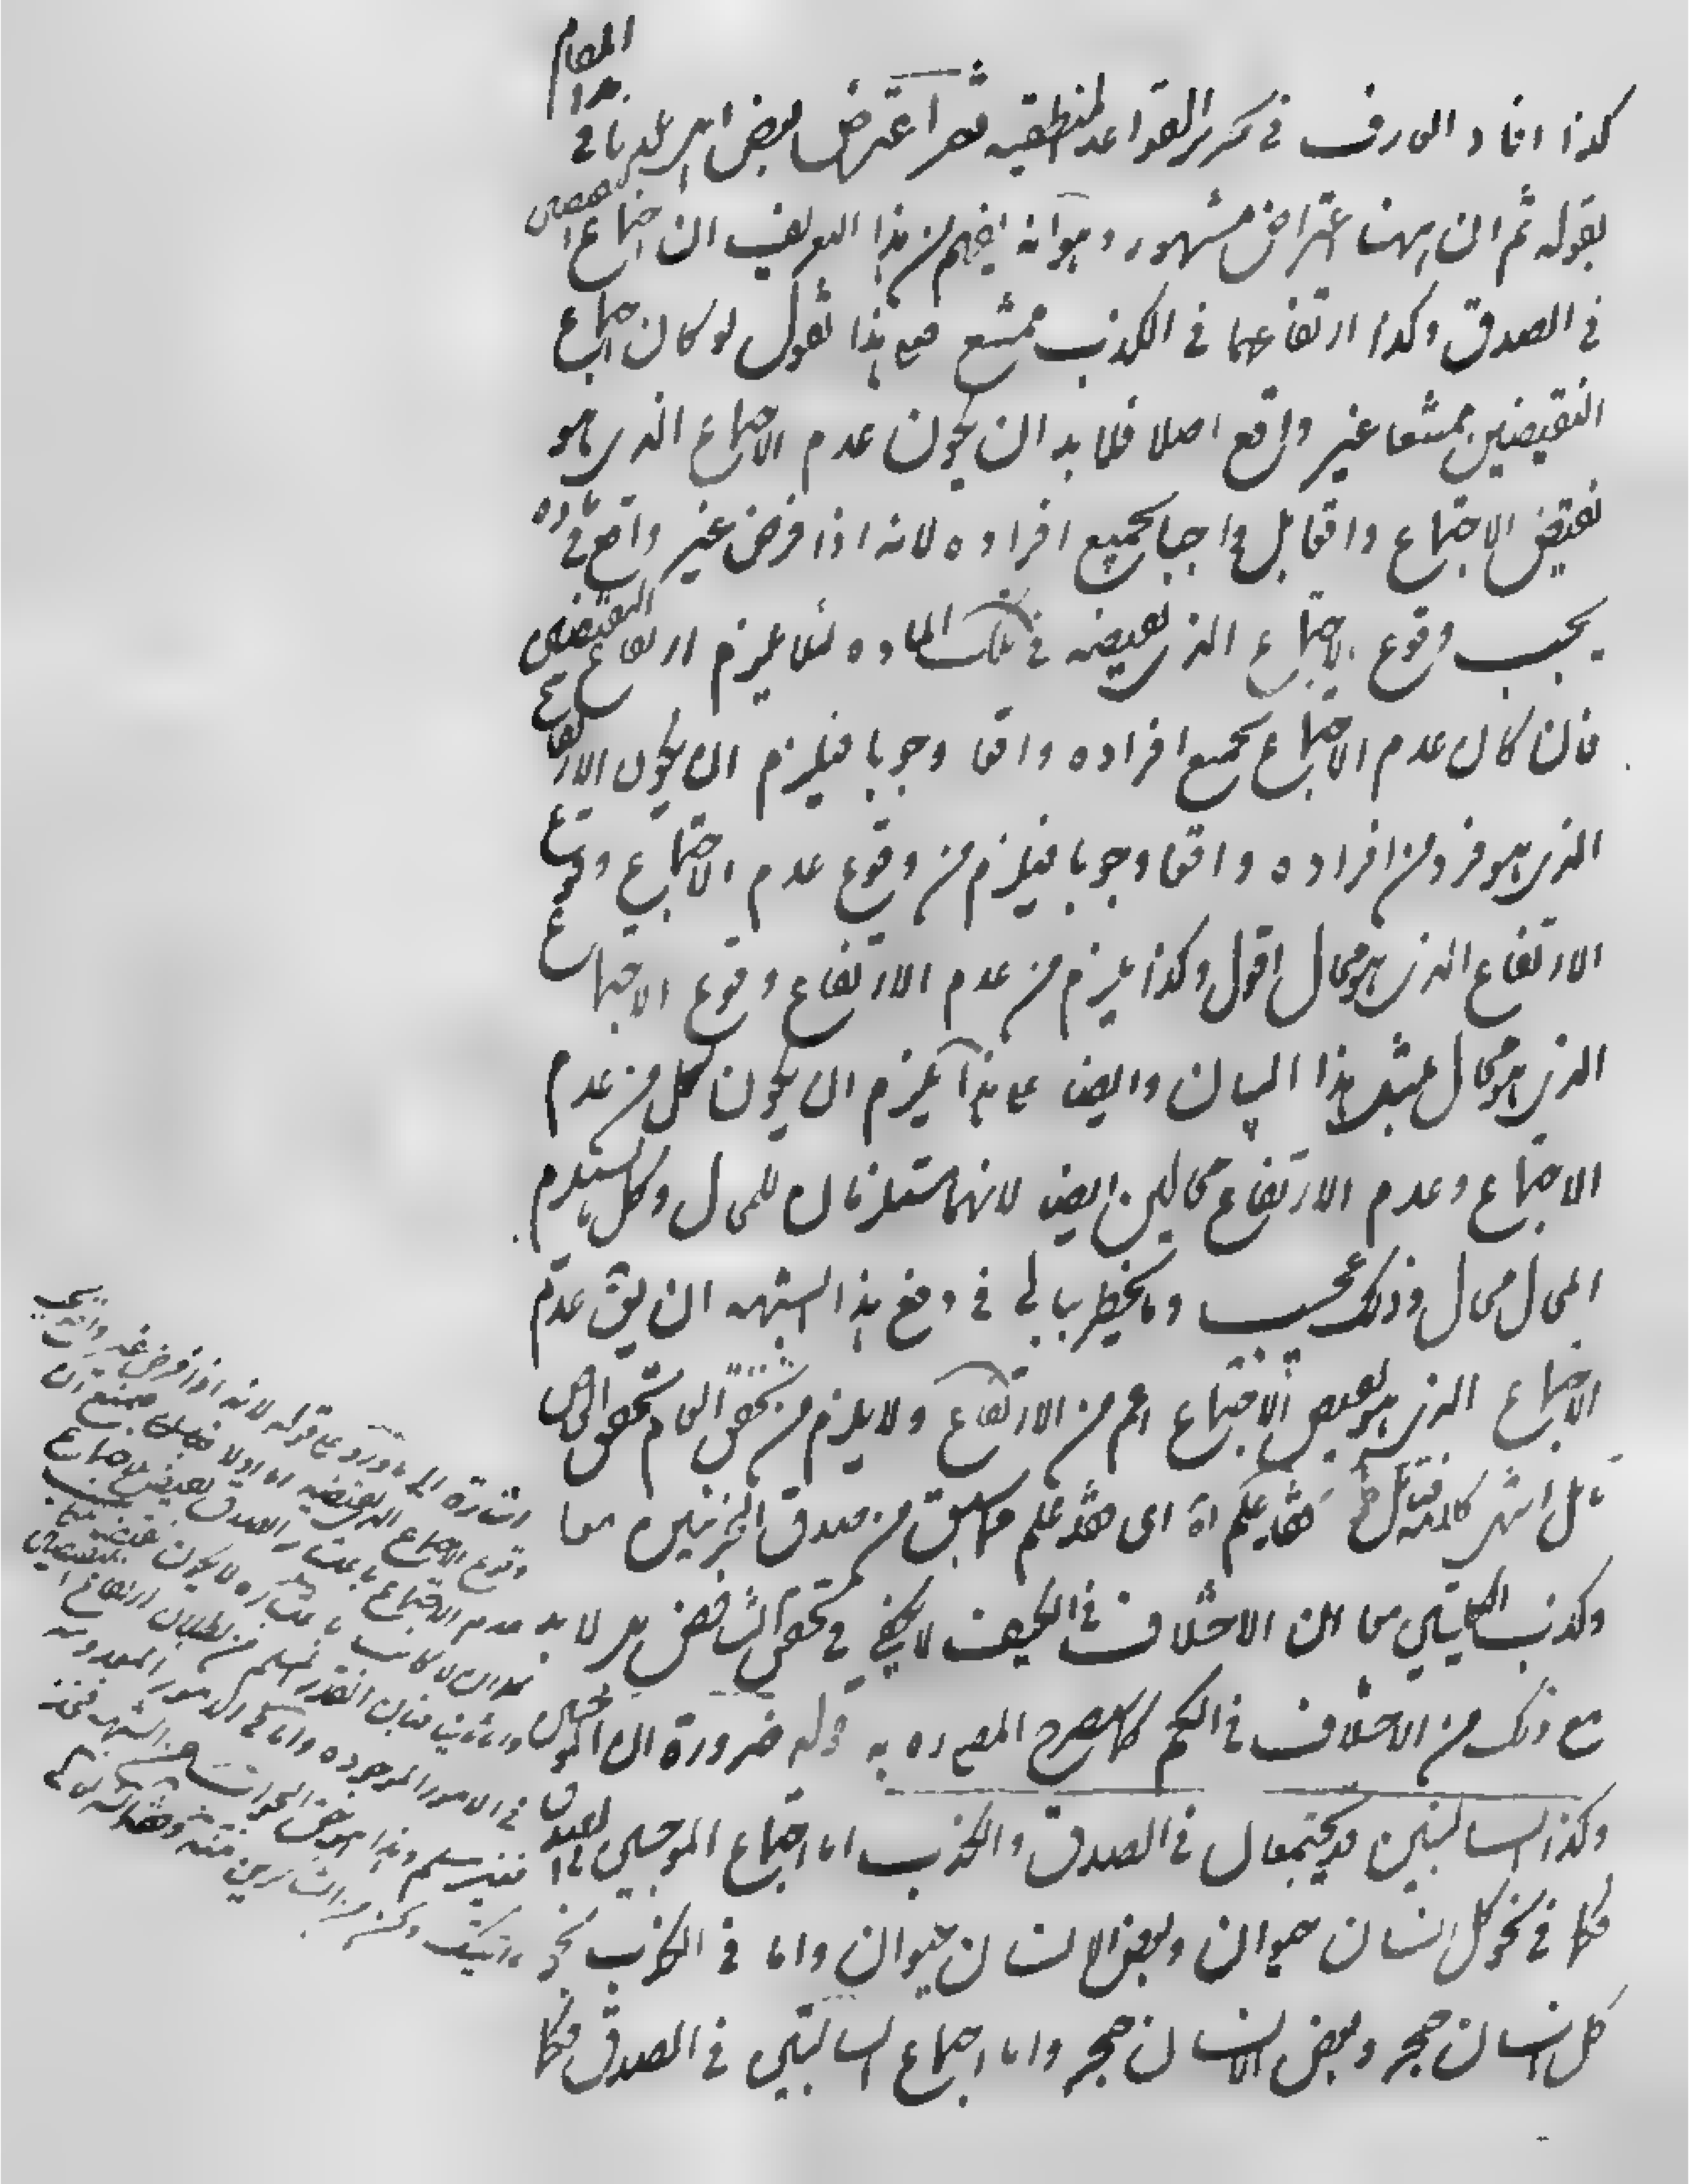 كذا افاد العارف في تحرير القواعد المنطقيه ثم اعترض بعض اهل بلدنا في هذا المقام
بقوله ثم ان ههنا اعتراض مشهور وهو انه يفهم من هذا التعريف ان اجتماع النقيضين
في الصدق وكذا ارتفاعهما في الكذب ممتنع فعلى هذا نقول لو كان اجتماع
النقيضين ممتنعا غير واقع اصلا فلا بد ان يكون عدم الاجتماع الذي هو
نقيض الاجتماع واقعا بل واجبا بجميع افراده لانه اذا فرض غير واقع في مادة
يجب وقوع الاجتماع الذي نقيضه في تلك المادة لئلا يلزم ارتفاع النقيضين
فان كان عدم الاجتماع بجميع افراده واقعا وجوبا فيلزم ان يكون الارتفاع
الذي هو فرد من افراده واقعا وجوبا فيلزم من وقوع عدم الاجتماع وقوع
الارتفاع الذي هو محال اقول وكذا يلزم من عدم الارتفاع وقوع الاجتماع
الذي هو محال بمثل هذا البيان وايضا على هذا يلزم ان يكون كل من عدم
الاجتماع وعدم الارتفاع محالين ايضا لانهما مستلزمان للمحال وكل ما يستلزم
المحال محال وذلك عجيب وما يخطر ببالي في دفع هذا الشبهه ان يق عدم
الاجتماع الذي هو نقيض الاجتماع اعم من الارتفاع ولا يلزم من تحقق العام تحقق الخاص
تامل انتهى كلامه فتامل قوله فقد علم اه اى فقد علم مما سبق من صدق الجزئيتين معا
وكذب الكليتين معا ان الاختلاف في الكيف لا يكفي في تحقق التناقض بل لا بد
مع ذلك من الاختلاف في الكم كما صرح المص ره به قوله ضرورة ان الموجبتين
وكذا السالبتين قد يجتمعان في الصدق والكذب اما اجتماع الموجبتين في الصدق
فكما في نحو كل انسان حيوان وبعض الانسان حيوان واما في الكذب نحو
كل انسان حجر وبعض الانسان حجر واما اجتماع السالبتين في الصدق فكما
اشارة الى ما ورد على قوله لانه اذا فرض غير واقع يجب
وقوع الاجتماع الذي نقيضه اما اولا فبان
عدم الاجتماع باعتبار الصدق نقيض الاجتماع
واما ثانيا فبان القدر المسلم من بطلان ارتفاع النقيضين
في الامور الموجوده واما في الامور المعدومه
فغير مسلم وهذا هو حق الجواب عن الشبهه فخذ
ما آتيتك وكن من الشاكرين